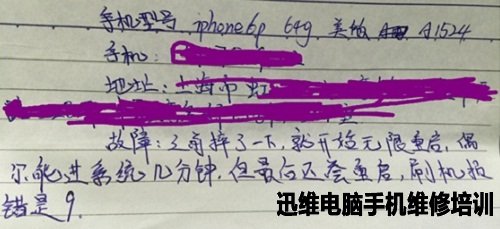 手机型号 iphone6p 64g 美版 A1524
手机:
地址:上海市虹
故障:之前摔了一下,就开始无限重启,偶
尔能进系统几分钟,但最后还会重启,刷机报
错是9.
迅维电脑手机维修培训